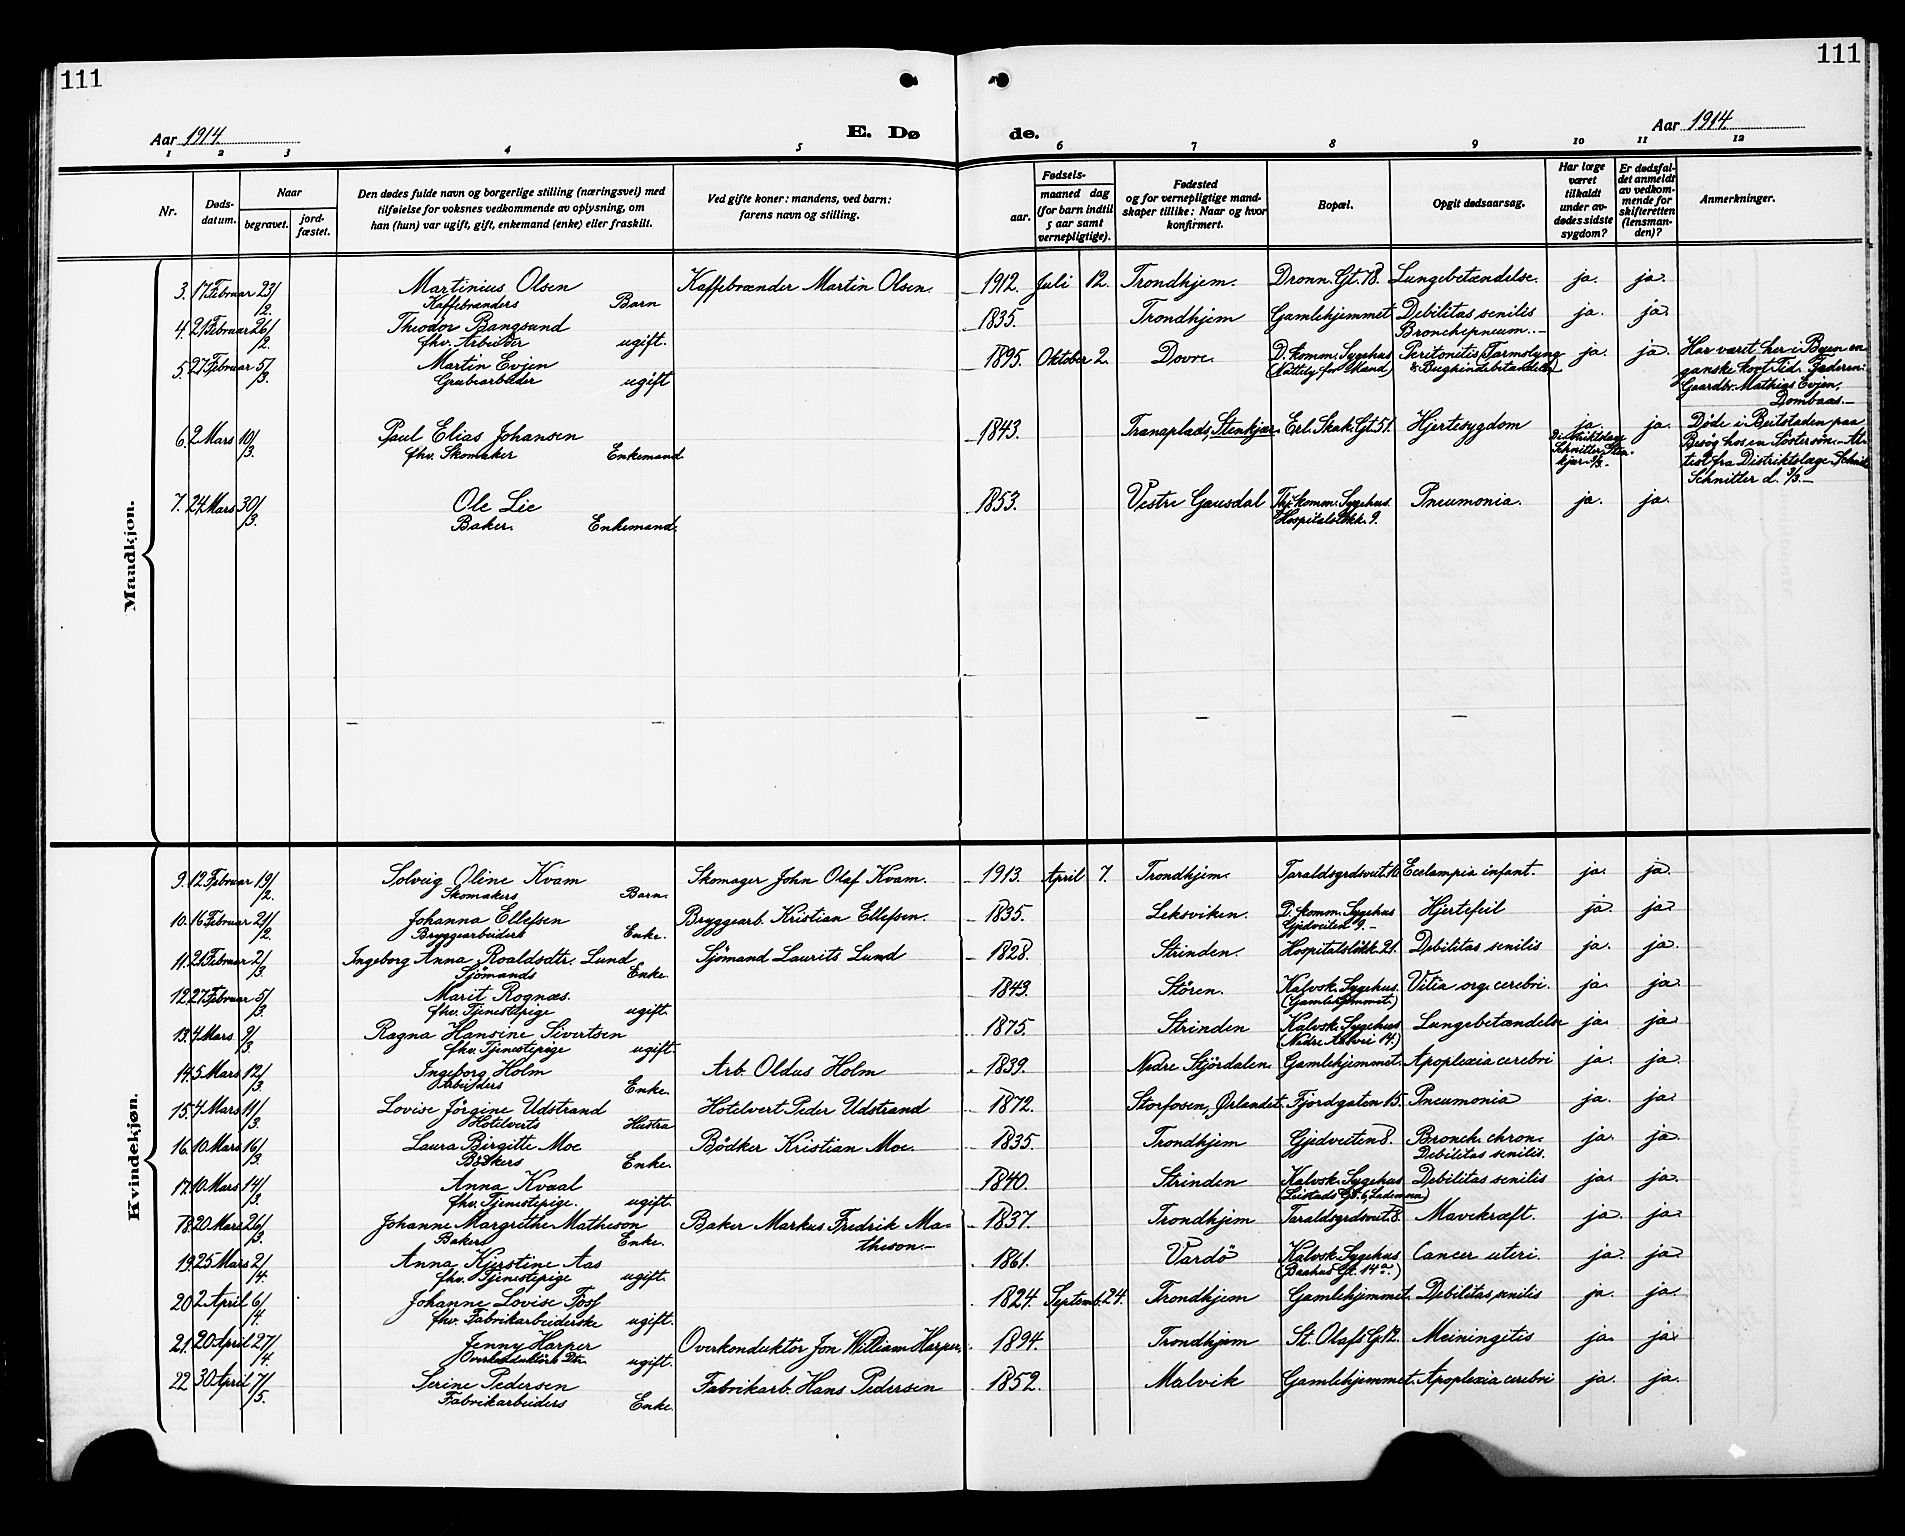 111
111
Aar 1914.
E. Dø
de.
Aar 1914.
1 2 3 4 5 6 7 8 9 10 11 12
Nr.
Døds-datum.
Naar
begravet.
jord-fæstet.
Den dødes fulde navn og borgerlige stilling (næringsvei) med
tilføielse for voksnes vedkommende av oplysning, om
han (hun) var ugift, gift, enkemand (enke) eller fraskilt.
Ved gifte koner: mandens, ved barn:
farens navn og stilling.
Fødsels-
aar.
maaned dag
(for barn indtil
5 aar samt
vernepligtige).
Fødested
og for vernepligtige mand-
skaper tillike: Naar og hvor
konfirmert.
Bopæl.
Opgit dødsaarsag.
Har læge
været
tilkaldt
under av-
dødes sidste
sygdom?
Er dødsfal-
det anmeldt
av vedkom-
mende for
skifteretten
(lensman-
den)?
Anmerkninger.
Mandkjøn.
3. 17 Februar 23/2. Martinius Olsen Kaffebrænder Martin Olsen. 1912. Juli 12. Trondhjem. Dronn. Gt. 78. Lungebetændelse. ja. ja.
Kaffebrænders Barn
4. 21 Februar 26/2. Theodor Bangsund 1835. Trondhjem Gamlehjemmet Debilitas senilis ja. ja.
fhv. Arbeider ugift. Bronchopneum. —
5. 27 Februar 5/3. Martin Evjen 1895. Oktober 2. Dovre. D. komm. Sygehus Peritonitis (Tarmslyng ja. ja. Har været her i Byen en
Grubearbeider ugift (Nattely for Mænd) & Bughindebetændelse) ganske kort Tid. Faderen:
Gaardbr. Mathias Evjen,
Dombaas. —
6. 2 Mars 10/3. Paul Elias Johansen 1843. Tranaplads, Stenkjær. Erl. Skak. Gt. 51. Hjertesygdom ja. ja. Døde i Beitstaden paa
fhv. Skomaker Enkemand Distriktslæge Besøg hos en Søstersøn. — At-
Schnitler, Sten- test fra Distriktslæge
kjær 3/3. — Schnitler d. 3/3. —
7. 24 Mars 30/3. Ole Lie 1853. Vestre Gausdal Thj. komm. Sygehus. Pneumonia. ja. ja.
Baker. Enkemand. Hospitalsløkk. 9.
Kvindekjøn.
9. 12 Februar 19/2. Solveig Oline Kvam Skomager John Olaf Kvam. 1913. April 7. Trondhjem. Taraldsgrdsveit. 10. Eclampia infant. ja. ja.
Skomakers Barn.
10. 16 Februar 21/2. Johanna Ellefsen Bryggearb. Kristian Ellefsen. 1835. Leksviken. D. komm. Sygehus Hjertefeil ja. ja.
Bryggearbeiders Enke. Gjedveiten 9. —
11. 21 Februar 2/3. Ingeborg Anna Roaldsdtr. Lund Sjömand Laurits Lund 1828. Strinden. Hospitalsløkk. 21. Debilitas senilis ja. ja.
Sjömands Enke.
12. 27 Februar 5/3. Marit Rognæs. 1849. Stören. Kalvsk. Sygehus. Vitia org. cerebri. ja. ja.
fhv. Tjenestepige ugift. (Gamlehjemmet.)
13. 4 Mars 9/3. Ragna Hansine Sivertsen 1875. Strinden Kalvsk. Sygehus Lungebetændelse ja. ja.
fhv. Tjenestepige ugift.
14. 5 Mars 12/3. Ingeborg Holm Arb. Oldus Holm 1839. Nedre Stjördalen. Gamlehjemmet. Apoplexia cerebri ja. ja.
Arbeiders Enke.
15. 7 Mars 11/3. Lovise Jörgine Udstrand Hotelvert Peder Udstrand 1872. Storfosen, Ørlandet. Fjordgaten 15. Pneumonia ja. ja.
Hotelverts Hustru
16. 10 Mars 16/3. Laura Birgitte Moe Bödker Kristian Moe. 1835. Trondhjem Gjedveiten 8. Bronch. chron. ja. ja.
Bödkers Enke. Debilitas senilis.
17. 10 Mars 14/3. Anna Kvaal 1840. Strinden Kalvsk. Sygehus Debilitas senilis ja. ja.
fhv. Tjenestepige. ugift.
18. 20 Mars 26/3. Johanne Margrethe Matheson Baker Markus Fredrik Ma- 1837. Trondhjem Taraldsgrdsveit. 8. Mavekræft. ja. ja.
Bakers Enke. theson. —
19. 25 Mars 2/4. Anna Kjerstine Aas 1861. Vardö Kalvsk. Sygehus Cancer uteri. ja. ja.
fhv. Tjenestepige ugift. (Baahus Gt. 14 a.)
20. 2 April 6/4. Johanne Lovise Foss 1824. Septemb. 24. Trondhjem Gamlehjemmet. Debilitas senilis ja. ja.
fhv. Fabrikarbeiderske ugift.
21. 20 April 27/4. Jenny Harper Overkonduktör Jon William Harper. 1894. Trondhjem St. Olafs Gt. 12. Meiningitis ja. ja.
Overkonduktörs Dtr. ugift.
22. 30 April 7/5. Serine Pedersen Fabrikarb. Hans Pedersen 1852. Malvik Gamlehjemmet. Apoplexia cerebri ja. ja.
Fabrikarbeiders Enke.